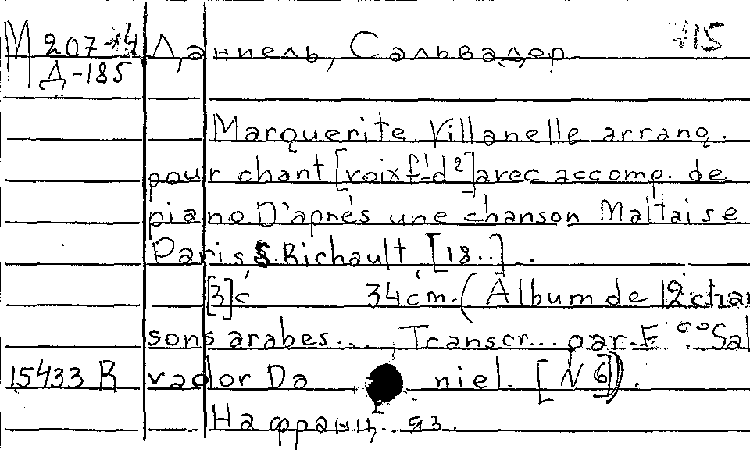 М 207-14 Даниель, Сальвадор 715
Д-185
Marguerite Villanelle arrang.
pour chant [voix f'-d²] avec accomp. de
piano. D'après une chanson Maltaise
Paris S. Richault, [18..].
[3] с 34 cm. (Album de 12 chan
sons arabes... Transcr... par. F. co Sal
15433 R vador Da niel. [N 6]).
На франц. яз.